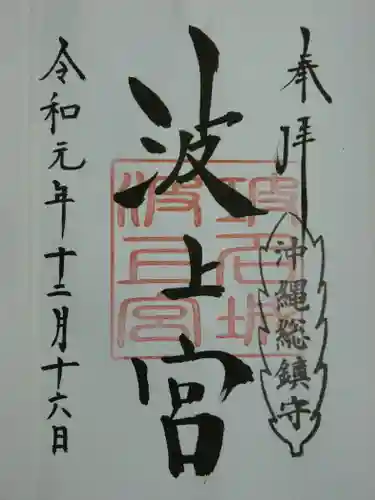 奉拝
沖縄総鎮守
波上宮
令和元年十二月十六日